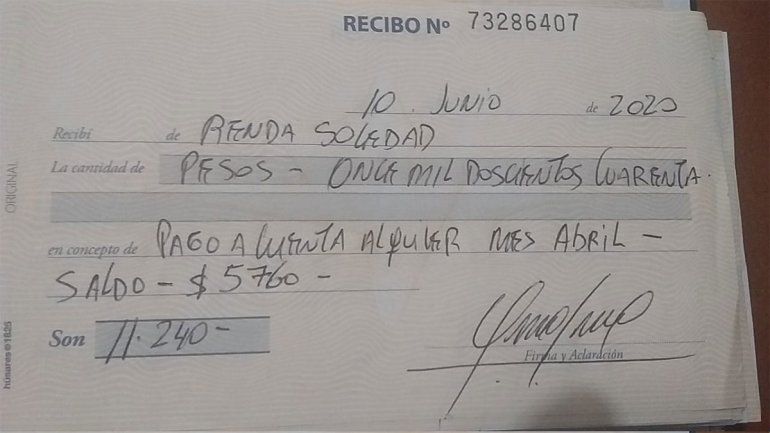 RECIBO Nº 73286407
10 . JUNIO de 2020
Recibí de RENDA SOLEDAD
La cantidad de PESOS - ONCE MIL DOSCIENTOS CUARENTA.
en concepto de PAGO A CUENTA ALQUILER MES ABRIL -
SALDO - $ 5760 -
Son 11.240 -
Firma y Aclaración
ORIGINAL
húsares®1826